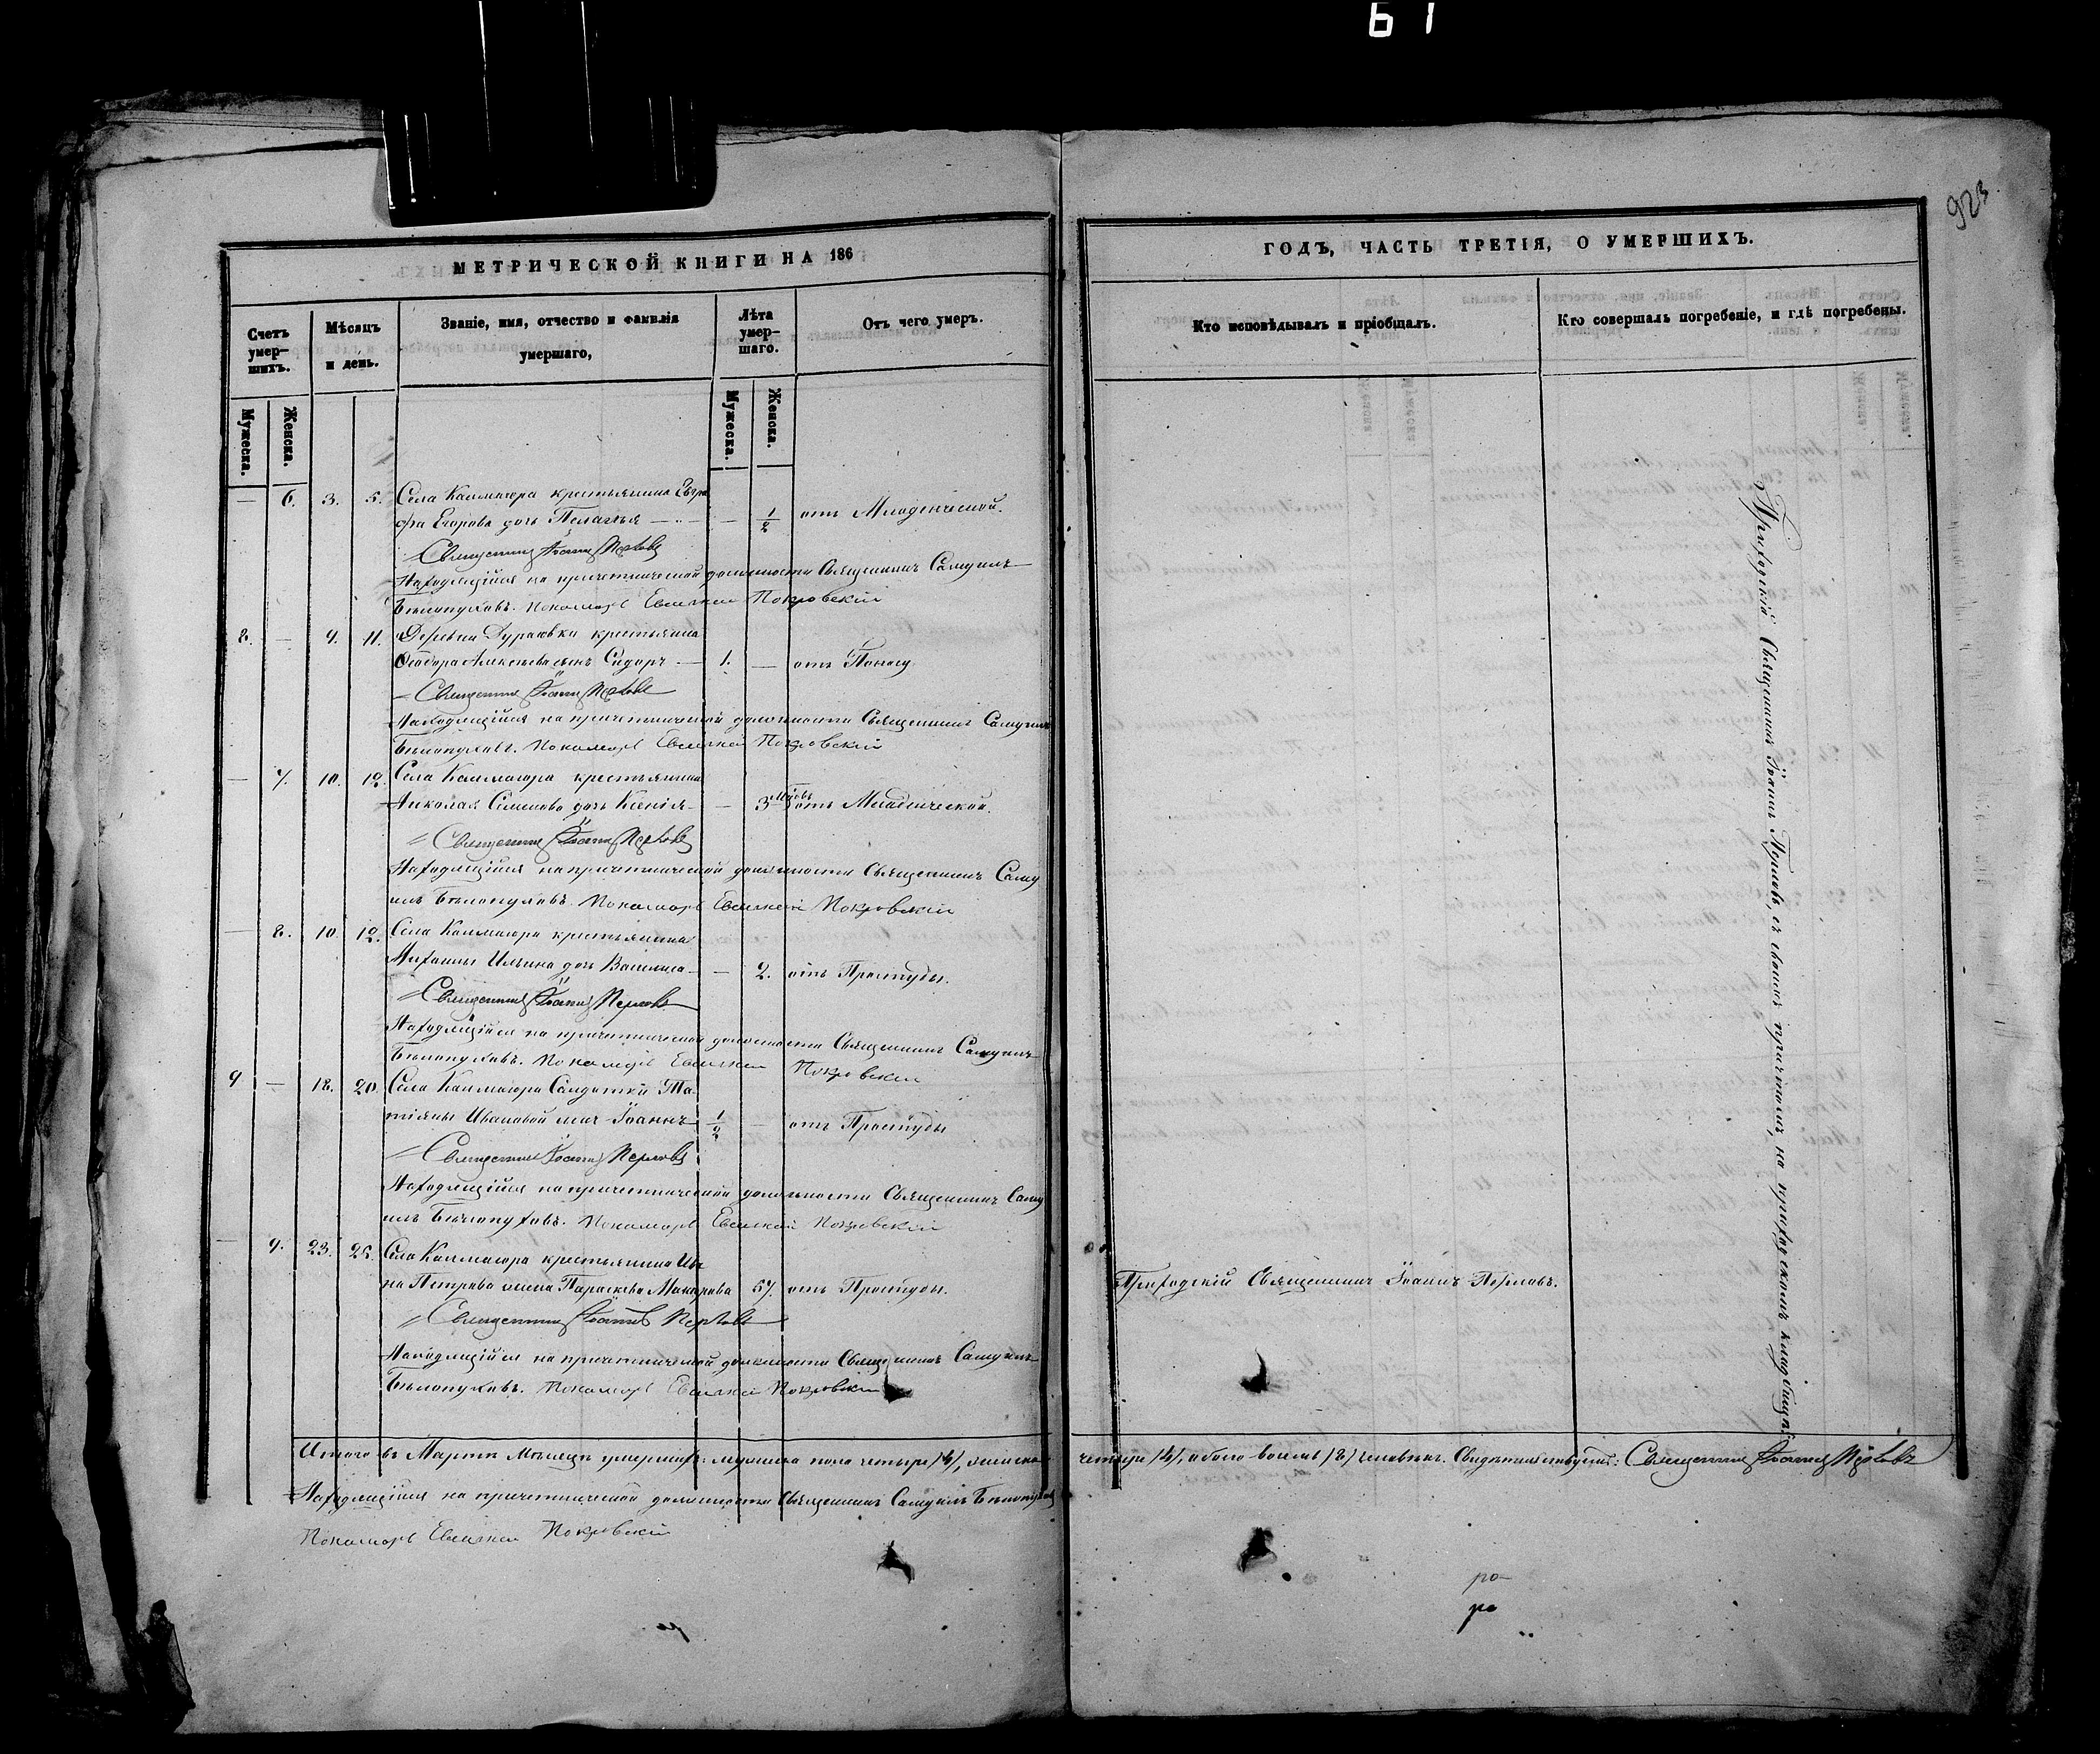 61
923
МЕТРИЧЕСКОЙ КНИГИ НА 186
Счетъ умер-шихъ.
Мѣсяцъ и день.
Званіе, имя, отчество и фамилія умершаго,
Лѣта умер-шаго.
Отъ чего умеръ.
Мужеска. Женска. Мужеска. Женска.
— 6. 3. 5. Села Калмаюра крестьянина
Егорова дочь Пелагея — — 1/2 отъ Младенческой.
Священникъ Іоаннъ Перловъ
Находящійся на причетнической должности Священникъ Самуилъ
Бѣлопуховъ. Пономарь Евгеній Покровскій
8. — 9. 11. Деревни Дурасовки крестьянина
Ѳеодора Алексѣева сынъ Сидоръ — 1. — отъ Поносу
Священникъ Іоаннъ Перловъ
Находящійся на причетнической должности Священникъ Самуилъ
Бѣлопуховъ. Пономарь Евгеній Покровскій
— 7. 10. 12. Села Калмаюра крестьянина
Николая Семенова дочь Ксенія — — 3 мѣсяц. отъ Младенческой.
Священникъ Іоаннъ Перловъ
Находящійся на причетнической должности Священникъ Саму
илъ Бѣлопуховъ. Пономарь Евгеній Покровскій
— 8. 10. 12. Села Калмаюра крестьянина
Михаилы Ильина дочь Василиса — — 2. отъ Простуды.
Священникъ Іоаннъ Перловъ
Находящійся на причетнической должности Священникъ Самуилъ
Бѣлопуховъ. Пономарь Евгеній Покровскій
9 — 18. 20. Села Калмаюра Солдатки Та
тіяны Ивановой сынъ Іоаннъ 1/2 — отъ Простуды
Священникъ Іоаннъ Перловъ
Находящійся на причетнической должности Священникъ Саму
илъ Бѣлопуховъ. Пономарь Евгеній Покровскій
— 9. 23. 25. Села Калмаюра крестьянина Ива
на Петрова жена Параскева Макарова 57. отъ Простуды.
Священникъ Іоаннъ Перловъ
Находящійся на причетнической должности Священникъ Самуилъ
Бѣлопуховъ. Пономарь Евгеній Покровскій
Итого въ Мартѣ Мѣсяцѣ умершихъ: мужеска пола четыре /4/, женска
Находящійся на причетнической должности Священникъ Самуилъ Бѣлопуховъ
Пономарь Евгеній Покровскій
ГОДЪ, ЧАСТЬ ТРЕТІЯ, О УМЕРШИХЪ.
Кто исповѣдывалъ и пріобщалъ.
Кто совершалъ погребеніе, и гдѣ погребены.
Приходскій Священникъ Іоаннъ Перловъ, съ своимъ причтомъ, на приходскомъ кладбищѣ.
Приходскій Священникъ Іоаннъ Перловъ.
четыре /4/, обоего восемь /8/ человѣкъ. Свидѣтельствуемъ: Священникъ Іоаннъ Перловъ
ро
ро